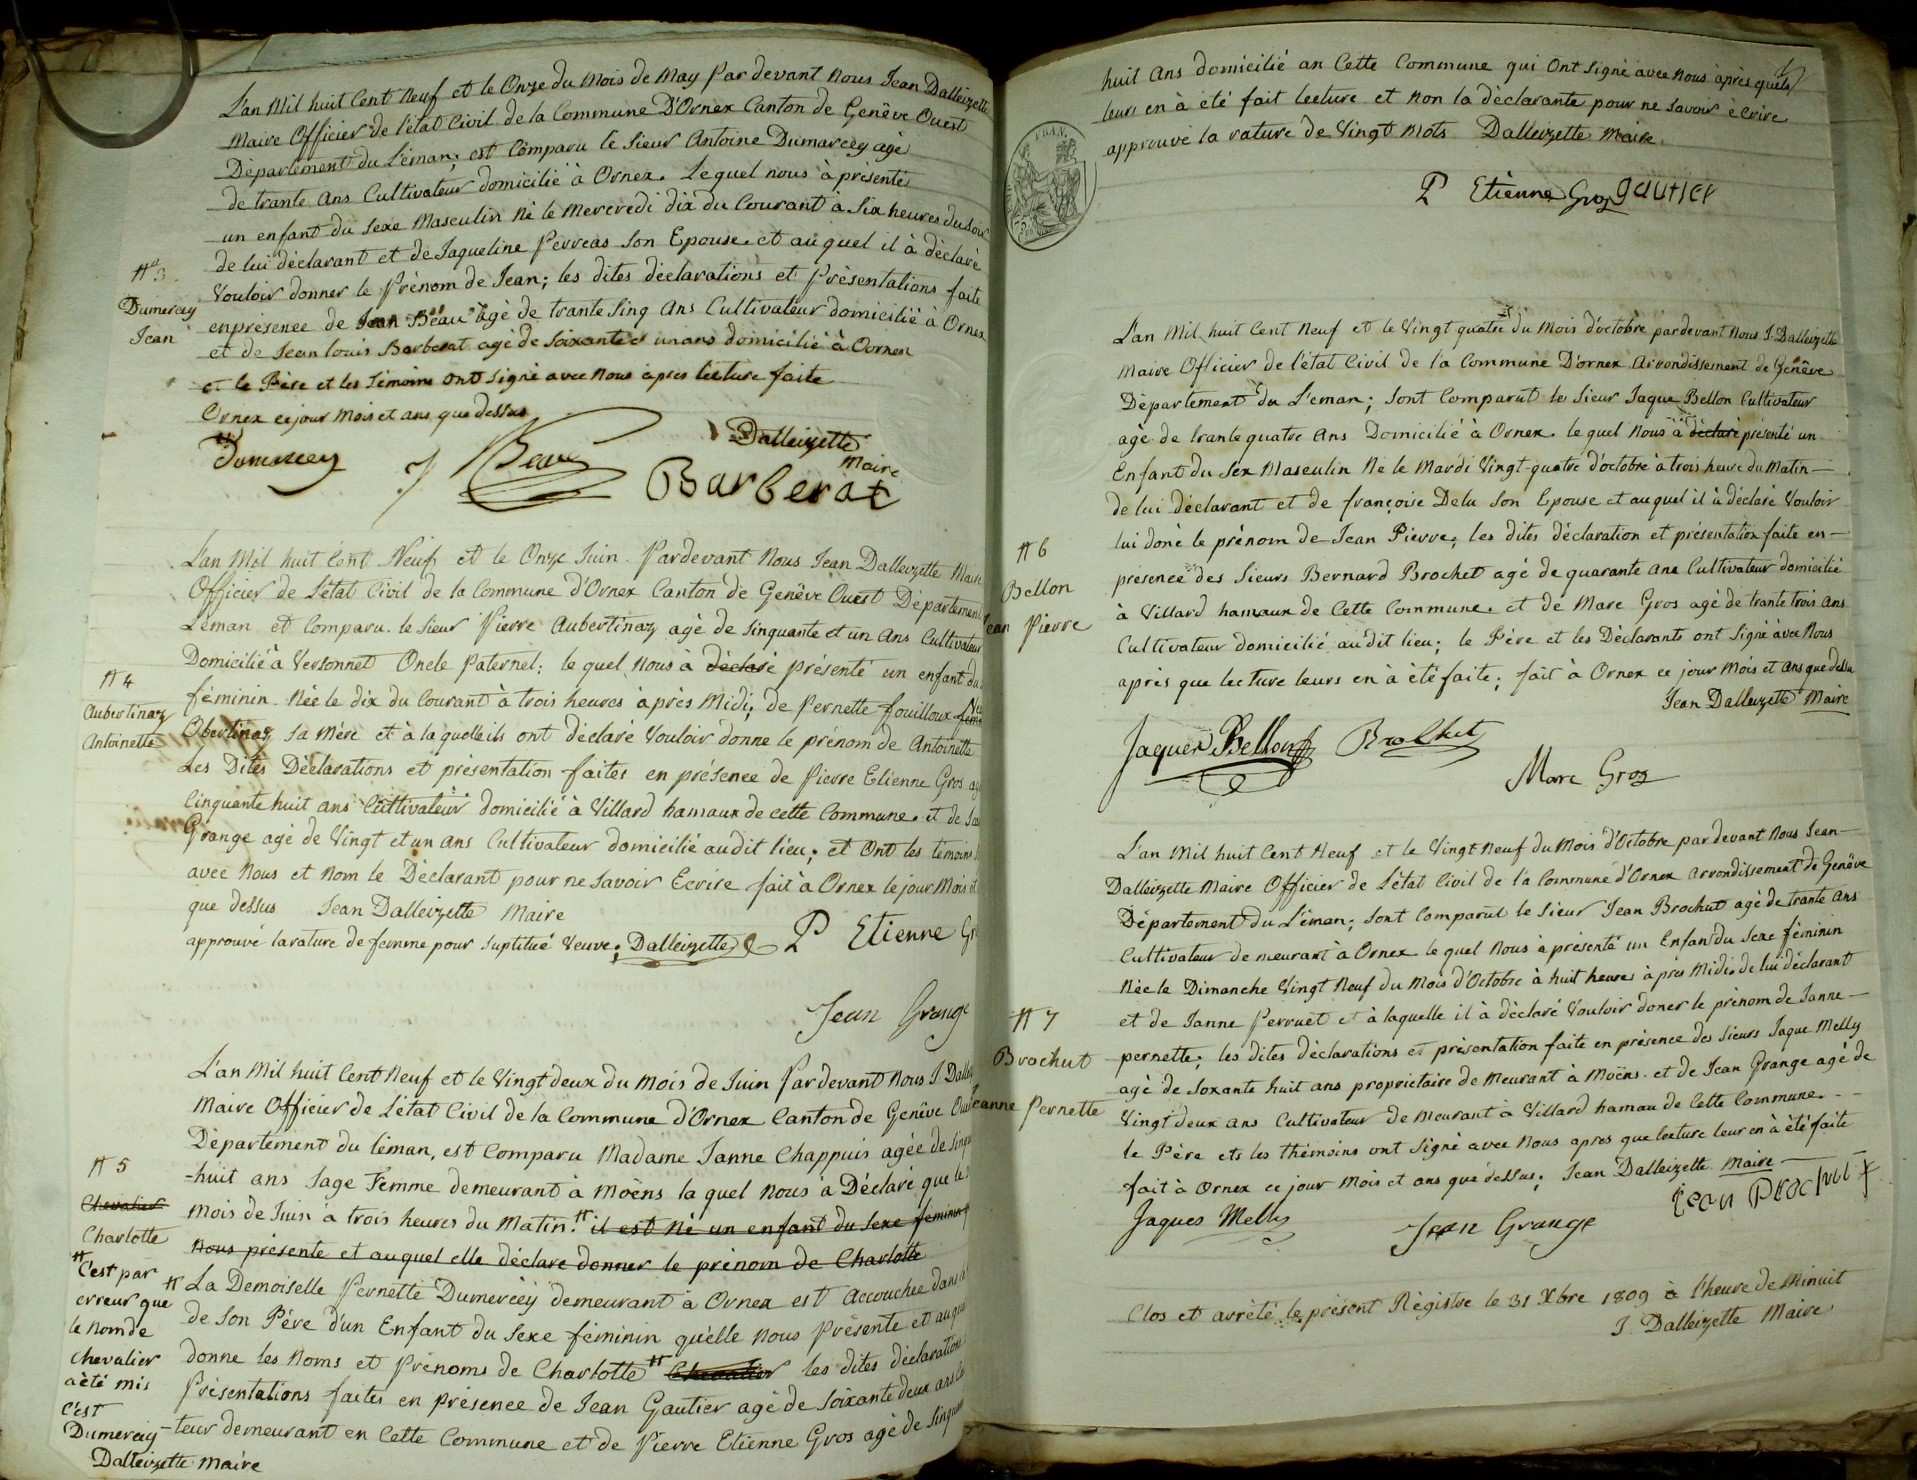 L'an Mil huit Cent Neuf et le Onze du Mois de May Par devant Nous Jean Dalleizette
Maire Officier de l'état Civil de la Commune D'Ornex Canton de Genêve Ouest
Département du Léman, est Comparu le Sieur Antoine Dumarcey agé
de trante Ans Cultivateur domicilié à Ornex. Le quel nous à presenté
un enfant du Sexe Masculin Né le Mercredi dix du Courant à Six heures du Soir
de lui déclarant et de Jaqueline Perreas Son Epouse. et au quel il à déclaré
Vouloir donner le Prénom de Jean; les dites déclarations et Présentations faite
en présence de Jean Beau agé de trante Sinq Ans Cultivateur domicilié à Ornex
et de Jean louis Barberat agé de Soixante et un ans domicilié à Oornex
et le Père et les Témoins ont Signé avec Nous après lecture faite
Ornex ce jour Mois et ans que dessus
N° 3.
Dumercey
Jean
Dumercey J Beau Dalleizette
Maire
Barberat
L'an Mil huit Cent Neuf et le Onze Juin Pardevant Nous Jean Dalleizette Maire
Officier de L'état Civil de la Commune d'Ornex Canton de Genêve Ouest Département
Léman et Comparu le Sieur Pierre Aubertinaz agé de Sinquante et un Ans Cultivateur
Domicilié à Versonnet Oncle Paternel; le quel Nous à déclaré présenté un enfant du
féminin Née le dix du Courant à trois heures après Midi; de Pernette fouilloux
Obertinaz Sa Mère et à la quelle ils ont déclaré Vouloir donne le prénom de Antoinette
Les Dites Déclarations et présentation faites en présence de Pierre Etienne Gros
Cinquante huit ans Cultivateur domicilié à Villard hamaux de cette Commune. et de
Grange agé de Vingt et un ans Cultivateur domicilié audit lieu; et Ont les témoins
avec Nous et Nom le Déclarant pour ne Savoir Ecrire fait à Ornex le jour Mois et
que dessus Jean Dalleizette Maire
approuvé la rature de femme pour suptitué Veuve; Dalleizette P Etienne
N 4
Aubertinaz
Antoinette
Jean Grange
L'an Mil huit Cent Neuf et le Vingt deux du Mois de Juin Par devant Nous J.
Maire Officier de L'état Civil de la Commune d'Ornex Canton de Genêve
Département du léman, est Comparu Madame Janne Chappuis agée de
-huit ans Sage Femme demeurant à Moëns la quel Nous à Déclaré que le
mois de Juin à trois heures du Matin. il est Né un enfant du Sexe feminin
Nous présente et auquel elle déclare donner le prénom de Charlotte
La Demoiselle Pernette Dumercéy demeurant à Ornex est Accouchée dans
de Son Père d'un Enfant du Sexe féminin qu'elle Nous Présente et
donne les Noms et Prénoms de Charlotte Chevalier les dites déclaration
Présentations faites en présence de Jean Gautier agé de Soixante deux ans
-teur demeurant en Cette Commune et de Pierre Etienne Gros agé de
N 5
Chevalier
Charlotte
C'est par
erreur que
le nom de
Chevalier
a été mis
C'est
Dumerciy
Dalleizette Maire
huit Ans domicilié an Cette Commune qui Ont Signé avec Nous après
leurs en à été fait lecture et Non la déclarante pour ne Savoir écrire
approuvé la rature de Vingt Mots Dalleizette Maire.
P Etienne Gros gautier
L'an Mil huit Cent Neuf et le Vingt quatre du Mois d'octobre pardevant Nous J. Dalleizette
Maire Officier de l'état Civil de la Commune D'ornex Arrondissement de Genêve
Département du Léman; Sont Comparut le Sieur Jaque Bellon Cultivateur
agé de trante quatre Ans Domicilié à Ornex. le quel Nous à déclaré présenté un
Enfant du Sex Masculin Né le Mardi Vingt-quatre d'octobre à trois heure du Matin—
de lui déclarant et de françoise Delu Son Epouse et au quel il à déclaré Vouloir
lui doné le prénom de Jean Pierre, les dites déclaration et présentation faite en—
présence des Sieurs Bernard Brochet agé de quarante Ans Cultivateur domicilié
à Villard hamaux de Cette Commune. et de Marc Gros agé de trante trois Ans
Cultivateur domicilié audit lieu; le Père et les Déclarants ont Signé avec Nous
après que lecture leurs en à été faite; fait à Ornex ce jour Mois et ans que dessu
Jean Dalleizette Maire
N 6
Bellon
Jean Pierre
Jaques Bellon Brochet
Marc Gros
L'an Mil huit Cent Neuf et le Vingt Neuf du Mois d'Octobre par devant Nous Jean—
Dalleizette Maire Officier de L'état Civil de la Commune d'Ornex Arrondissement de Genêve
Département du Léman; Sont Comparut le Sieur Jean Brochut agé de trante Ans
Cultivateur de meurant à Ornex le quel Nous à présenté un Enfan du Sexe féminin
Née le Dimanche Vingt Neuf du Mois d'Octobre à huit heures à près Midi. de lui déclarant
et de Janne Perruet et à laquelle il à déclaré Vouloir doner le prénom de Janne—
pernette; les dites déclarations et présentation faite en présence des Sieurs Jaque Melly
agé de Soxante huit ans proprietaire de Meurant à Moëns. et de Jean Grange agé de
Vingt deux ans Cultivateur de meurant à Villard hamau de Cette Commune. - -
le Père ets les thémoins ont Signé avec Nous apres que lecture leur en à été faite
fait à Ornex ce jour Mois et ans que dessus; Jean Dalleizette Maire —
N 7
Brochut
Jeanne Pernette
Jaques Melly Jean Grange Jean Brochut
Clos et arrêté le présent Régistre le 31 Xbre 1809 à l'heure de Minuit
J. Dalleizette Maire